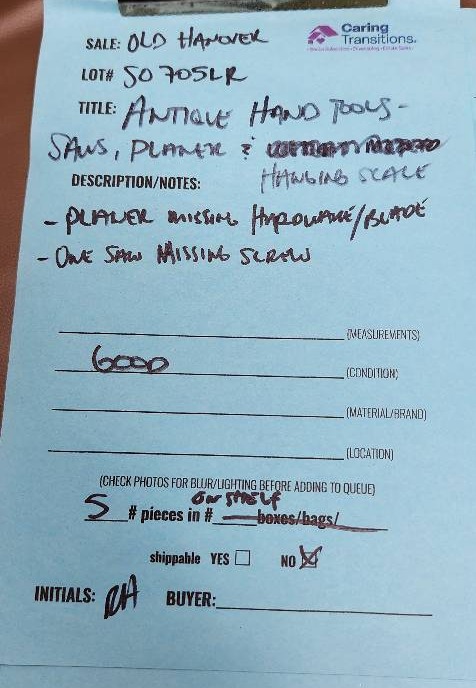 Caring
Transitions.
SALE: OLD HANOVER
LOT# SO705LR
TITLE: ANTIQUE HAND TOOLS -
SAWS, PLANER &
HANGING SCALE
DESCRIPTION/NOTES:
- PLANER MISSING HARDWARE/BLADE
- ONE SAW MISSING SCREW
(MEASUREMENTS)
GOOD (CONDITION)
(MATERIAL/BRAND)
(LOCATION)
(CHECK PHOTOS FOR BLUR/LIGHTING BEFORE ADDING TO QUEUE)
ON SHELF
5 # pieces in # boxes/bags/
shippable YES NO
INITIALS: RA BUYER: